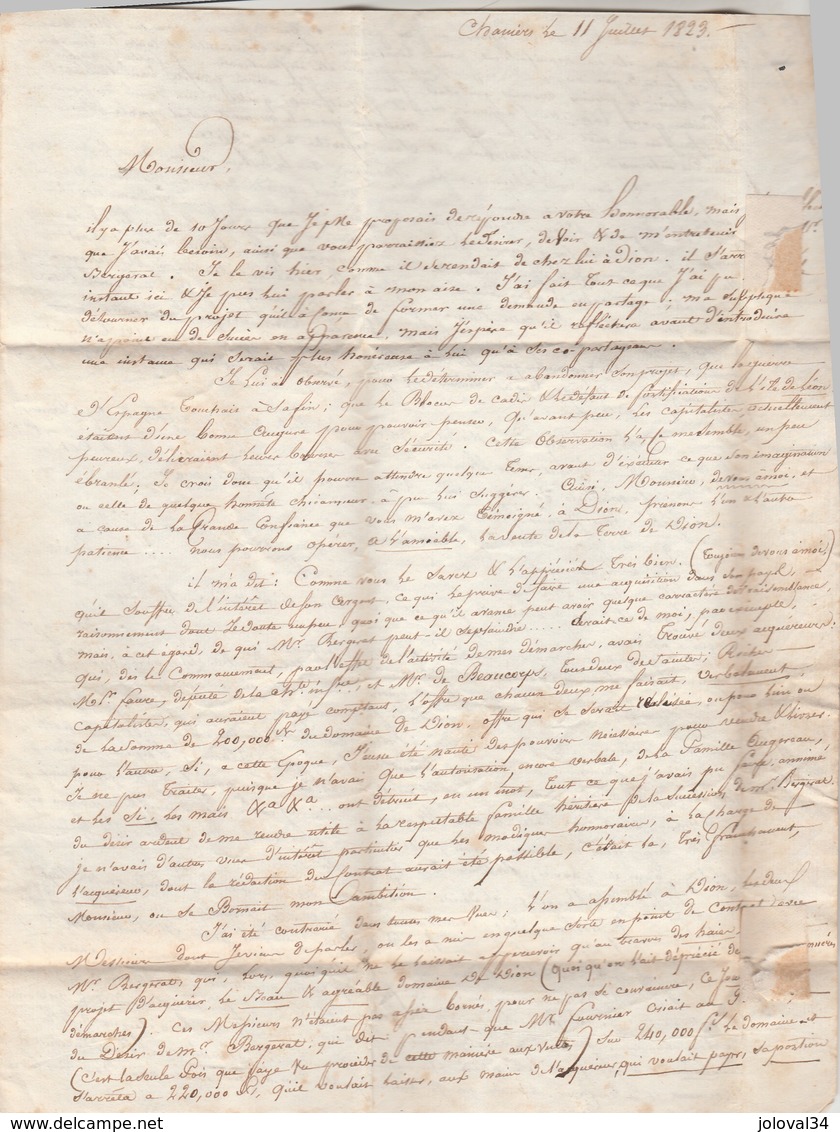 Chaniers le 11 Juillet 1823.
Monsieur,
il y a plus de 10 Jours que Je me proposais de répondre a votre honnorable, mais
que J'avais besoin, ainsi que vous parraissiez le desirer, de voir & de m'entretenir
Bergerat. Je le vis hier, comme il descendait de chez lui à Dion. il s'arr
instant ici & Je pus lui parler à mon aise. J'ai fait tout ce que J'ai pu
détourner du projet qu'il a conçu de former une demande en partage; ma
n'a point eu de Succès en apparence, mais J'espère qu'il reflêchira avant d'introduire
une instance qui serait plus honéreuse à Lui qu'à ses co-partageans.
Je lui ai observé, pour le déterminer a abandonner son projet, que la guerre
d'Espagne touchait à sa fin; que le Blocus de cadix & le défaut de fortifications de l'ile de Léon
étaient d'une bonne augure pour pouvoir penser, qu'avant peu, les capitalistes actuellement
peureux, délieraient leurs bourses avec sécurité. Cette observation l'a, ce me semble, un peu
ébranlé; Je crois donc qu'il pourra attendre quelque tems, avant d'exécuter ce que son imagination
ou celle de quelque honnête chicaneur a pu lui suggérer. Ainsi, Monsieur, de vous à moi, et
a cause de la Grande Confiance que vous m'avez témoigné, à Dion, prenons l'un & l'autre
patience .... nous pourrons opérer, a l'amiable, la vente de la Terre de Dion.
il m'a dit: Comme vous le savez & l'appréciez très bien. (toujours de vous à moi,)
qu'il souffre de l'intérêt de son argent, ce qui le prive de faire une acquisition dans son pays,
raisonnement dont Je doute un peu, quoi que ce qu'il avance peut avoir quelque carractère de vraisemblance,
mais, à cet égard, de qui Mr. Bergerat peut-il se plaindre ..... serait-ce de moi, par exemple,
qui, dès le Commancement, par l'effet de l'activité de mes démarches, avais trouvé deux acquéreurs:
Mr. Faure, député de la Chte inf.re, et Mr. de Beaucorps, tous deux de Saintes, Riches
capitalistes, qui auraient payé comptant, l'offre que chacun deux me faisait, verbalement,
de la somme de 200,000 f. du domaine de Dion, offre qui se serait réalisée, ou pour l'un ou
pour l'autre, Si, a cette époque, J'eusse été nanti des pouvoirs nécessaires pour vendre & livrer.
Je ne pus traiter, puisque je n'avais que l'autorisation, encore verbale, de la famille Augereau,
et les Si, les mais &a &a... ont détruit, en un mot, tout ce que j'avais pu faire, animé
du désir ardent de me rendre utile à la respectable famille héritière de la succession de Mr. Bergerat.
je n'avais d'autres vues d'intérêt particulier que les modiques honnoraires, à la charge de
l'acquéreur, dont la rédaction du Contrat aurait été passible, c'était là, très franchement,
Monsieur, ou se Bornait mon ambition.
J'ai été contrarié dans toutes mes vues: l'on a assemblé à Dion, les deux
Messieurs dont Je viens de parler, on les a mis en quelque sorte en point de contact avec
Mr. Bergerat, qui, lors, quoi qu'il ne se laissait appercevoir qu'au travers des haies
projet d'acquérir, le Beau & agréable domaine de Dion (quoi qu'on l'ait déprécié de
démarches). Ces Messieurs n'étaient pas assez bornés, pour ne pas se convaincre, ce Jour
du Désir de Mr. Bergerat, qui dit pendant que Mr. Fournier criait au
(c'est la seule fois que j'aye vu procéder de cette manière aux ventes) sur 240,000 f. le domaine et
s'arrêta a 220,000 f., qu'il voulait laisser, aux mains de l'acquéreur, qui voulait payer, sa portion